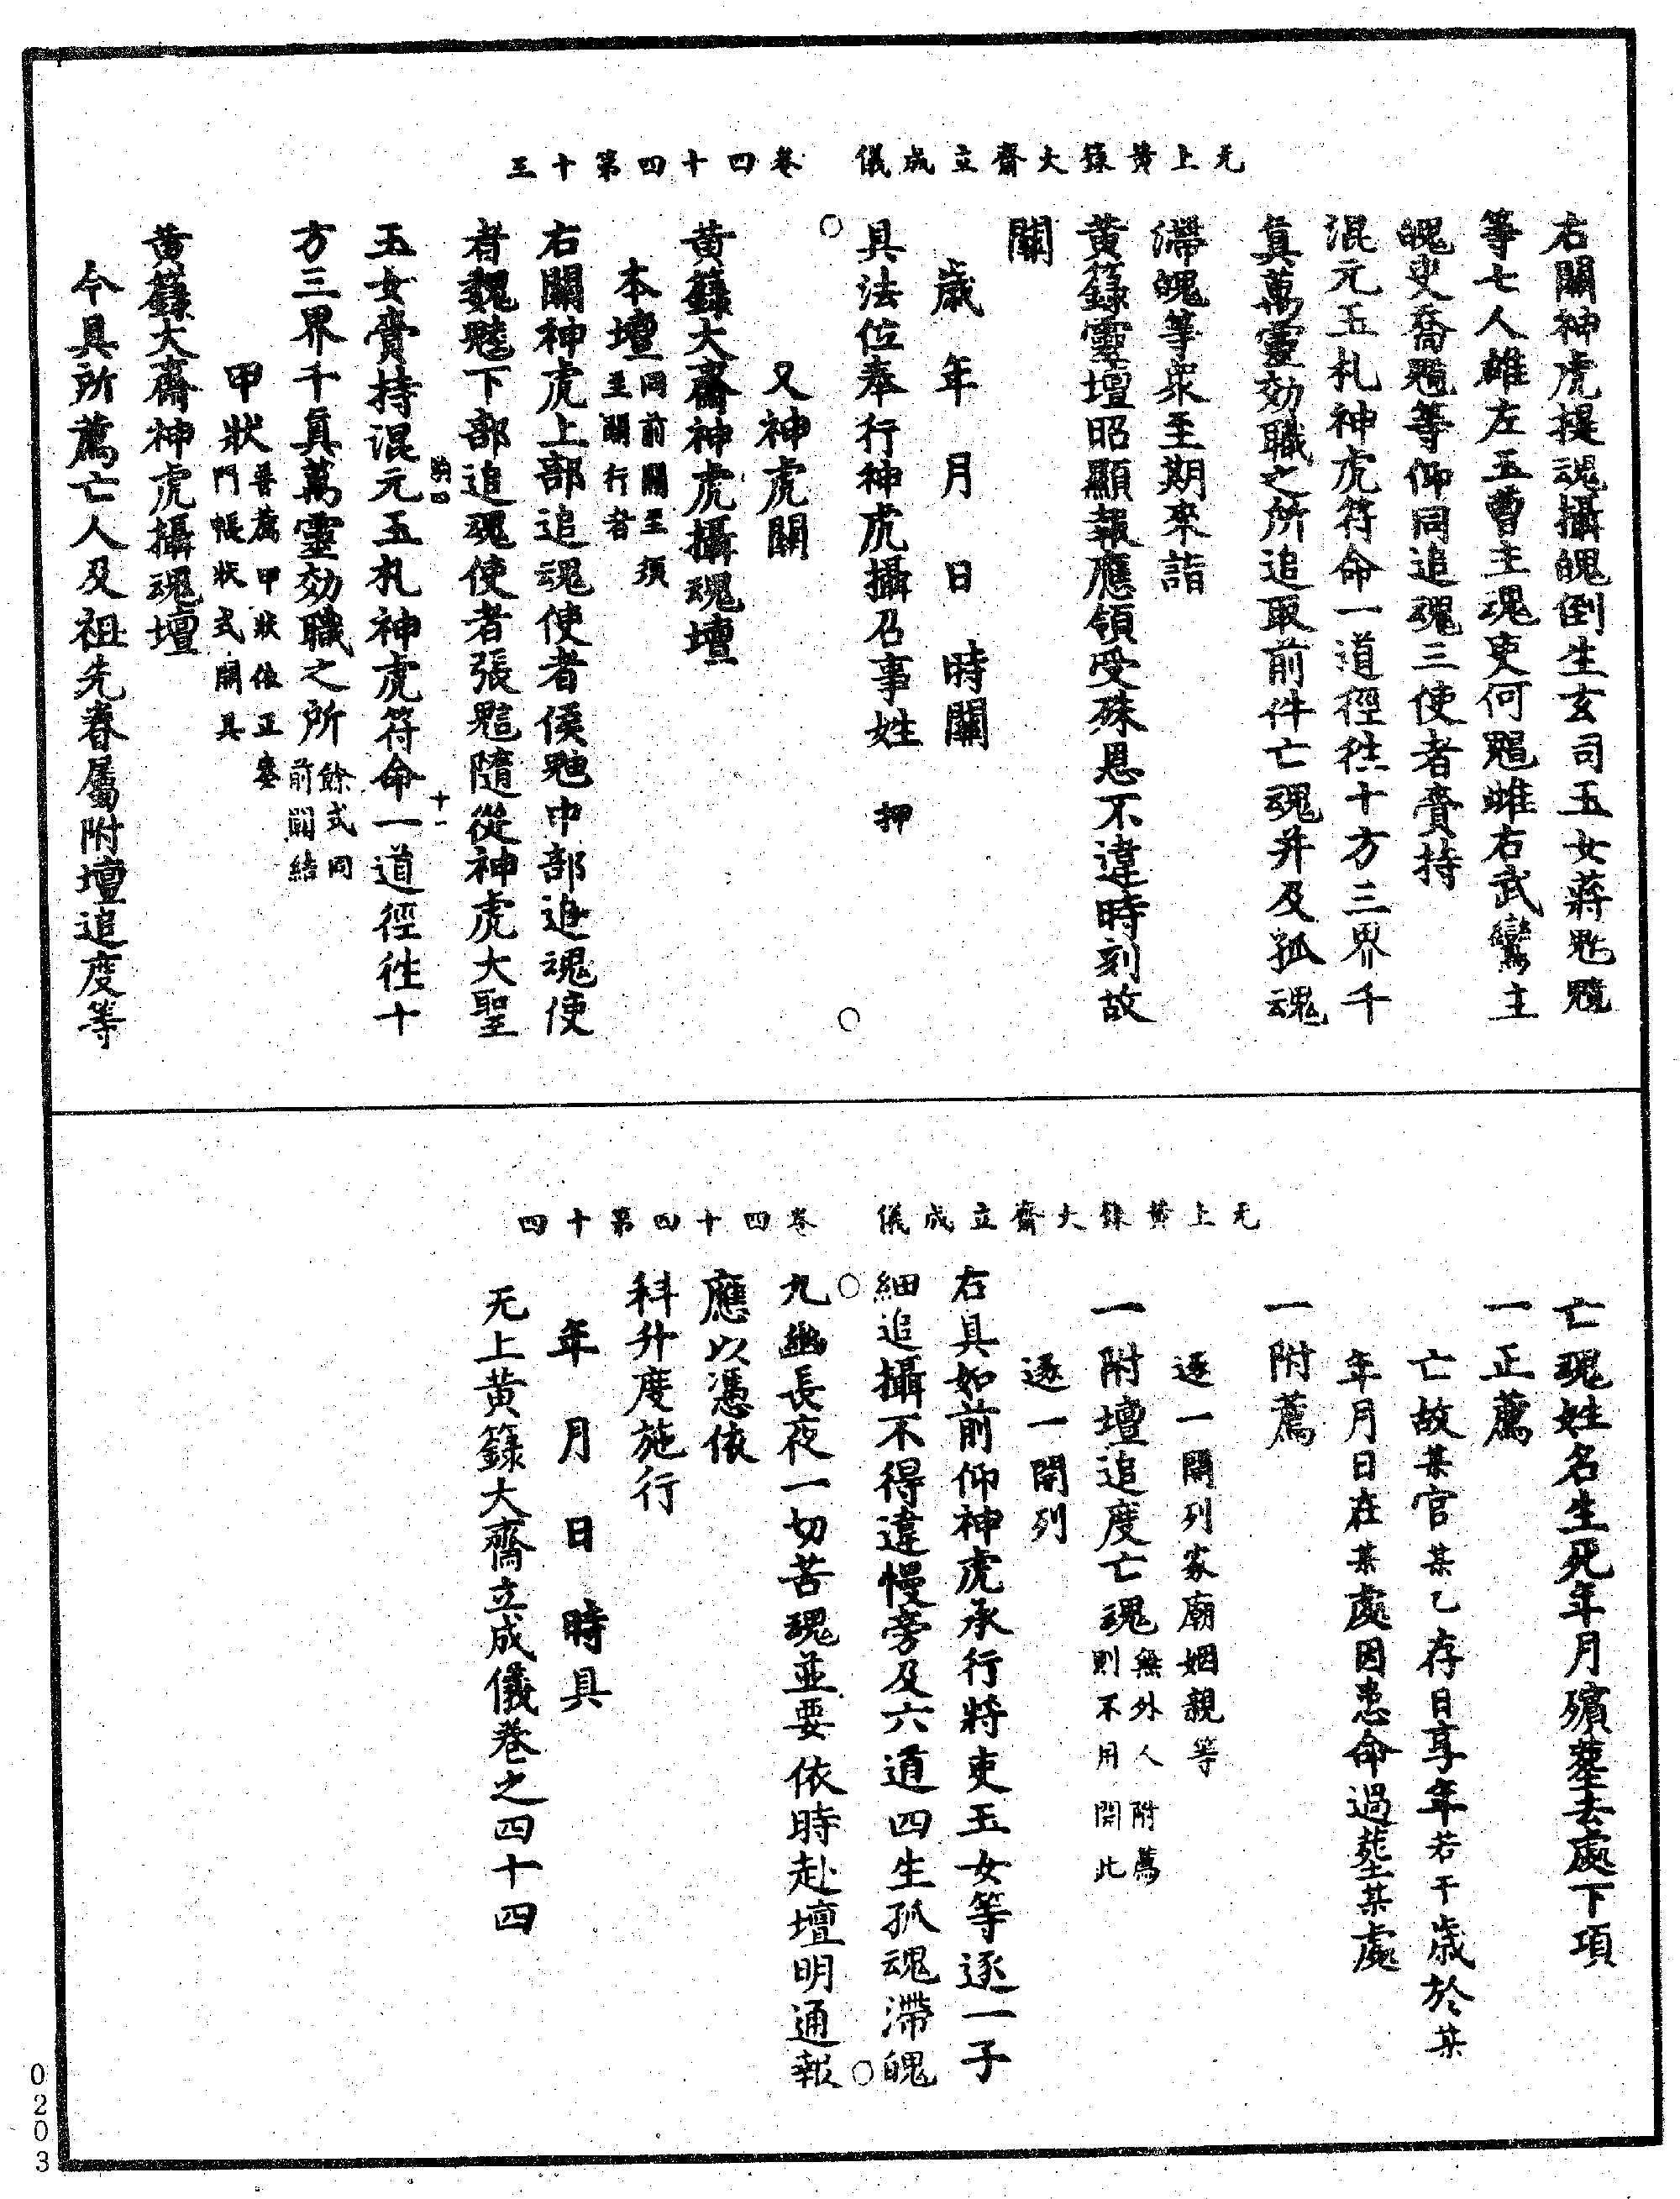 无上黃籙大齋立成儀　卷四十四第十三
右關神虎提魂攝魄倒生玄司玉女蔣
等七人雌左玉曹主魂吏何　雌右武鸞主
魄吏喬　等仰同追魂三使者賫持
混元玉札神虎符命一道徑往十方三界千
眞萬靈効職之所追取前件亡魂并及孤魂
滯魄等衆至期來詣
黃籙靈壇昭顯報應領受殊恩不違時刻故
關
歲　年　月　日　時關
具法位奉行神虎攝召事姓　押
又神虎關
黃籙大齋神虎攝魂壇
本壇同前關至須至關行者
右關神虎上部追魂使者侯　中部追魂使
者魏　下部追魂使者張　隨從神虎大聖
玉女賫持混元玉札神虎符命一道徑往十
岡四　十一
方三界千眞萬靈効職之所餘式同前關結
甲狀普薦甲狀依正奏門帳狀式開具
黃籙大齋神虎攝魂壇
今具所薦亡人及祖先眷屬附壇追度等
无上黃籙大齋立成儀　卷四十四第十四
亡魂姓名生死年月殯墓去處下項
一正薦
亡故某官某乙存日享年若干歲於某
年月日在某處因患命過葬某處
一附薦
逐一關列家廟姻親等
一附壇追度亡魂無外人附薦則不用開此
逐一開列
右具如前仰神虎承行將吏玉女等逐一子
細追攝不得違慢旁及六道四生孤魂滯魄
九幽長夜一切苦魂並要依時赴壇明通報
應以憑依
科升度施行
年　月　日　時具
无上黃籙大齋立成儀卷之四十四
0203